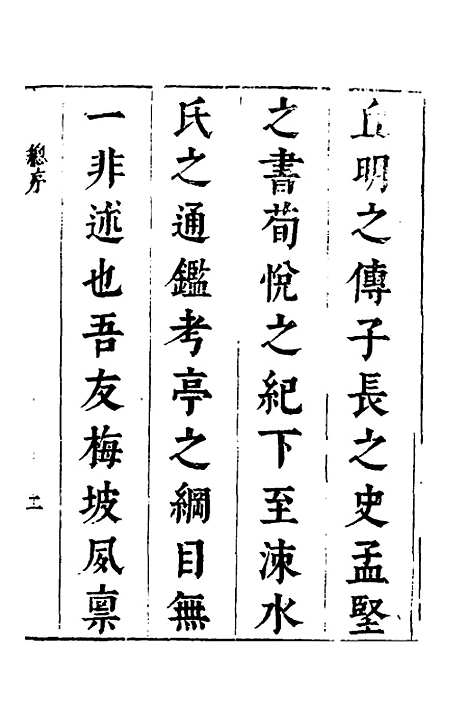 丘明之傳子長之史孟堅
之書荀悅之紀下至涑水
氏之通鑑考亭之綱目無
一非述也吾友梅坡夙禀
總序
二